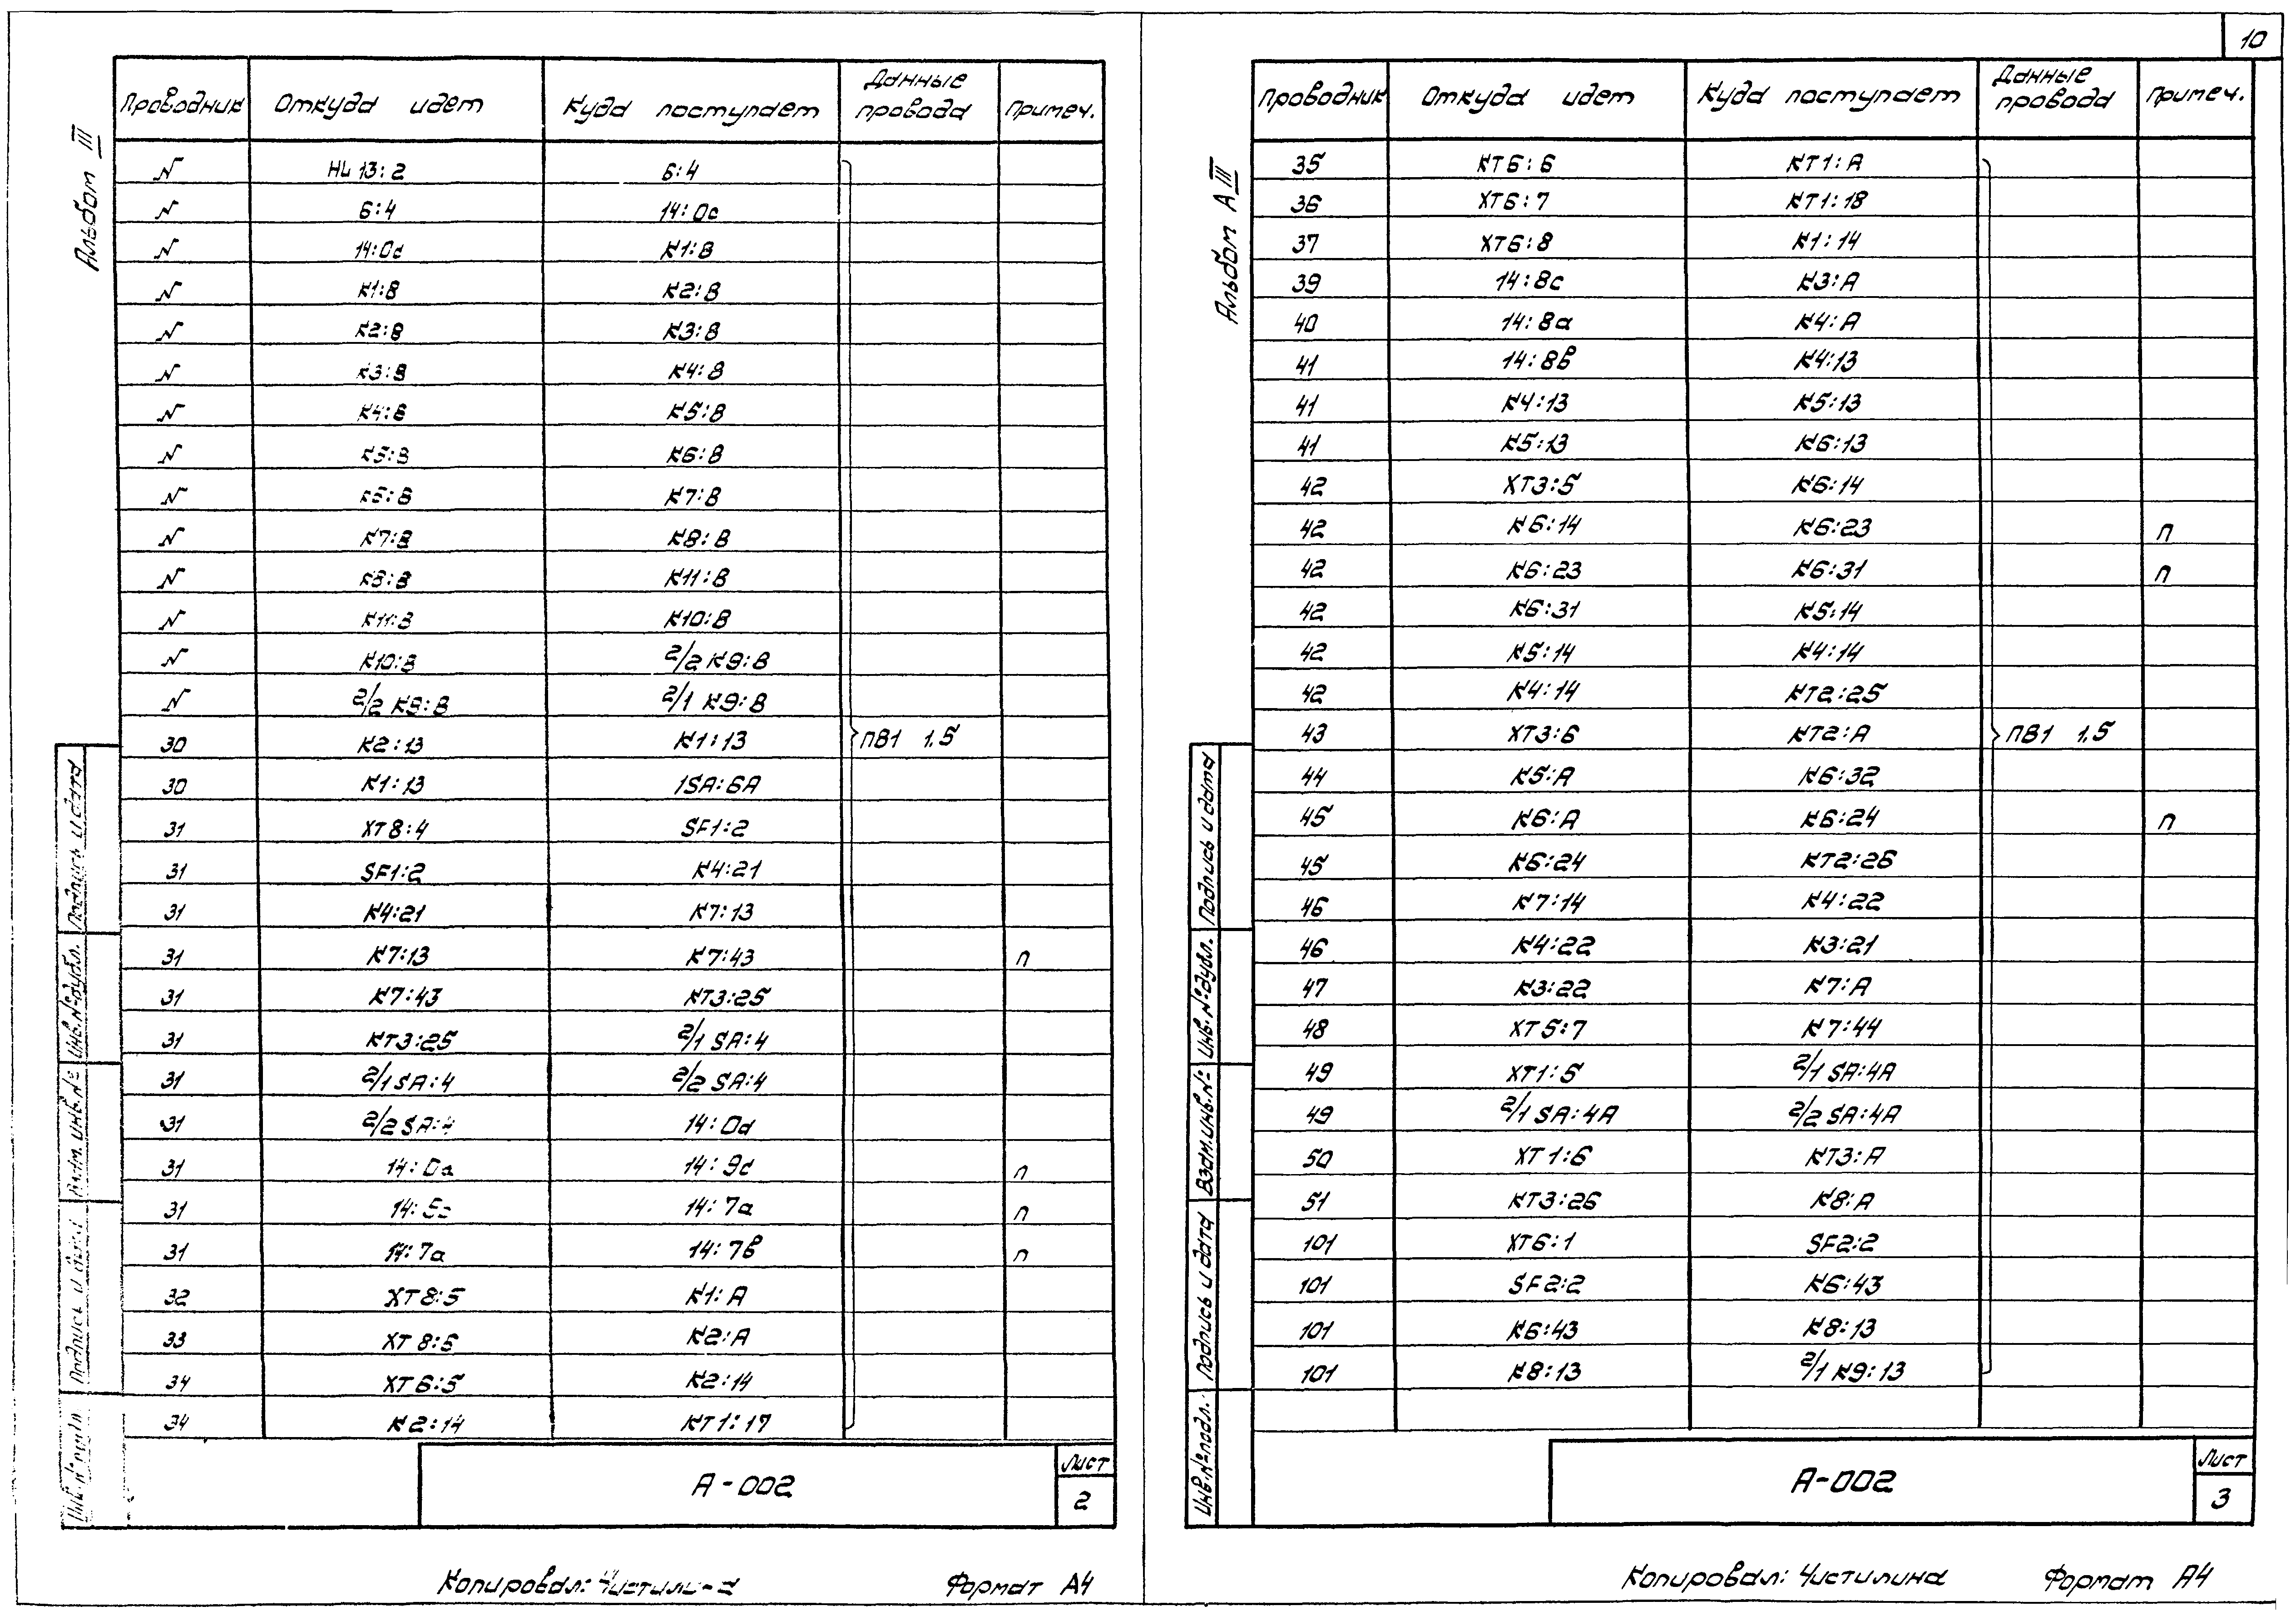 10
Альбом III
Проводник Откуда идет Куда поступает Данные провода Примеч.
N HL 13:2 6:4
N 6:4 14:0c
N 14:0d К1:В
N К1:В К2:В
N К2:В К3:В
N К3:В К4:В
N К4:В К5:В
N К5:В К6:В
N К6:В К7:В
N К7:В К8:В
N К8:В К11:В
N К11:В К10:В
N К10:В 2/2 К9:В
N 2/2 К9:В 2/1 К9:В
30 К2:13 К1:13 ПВ1 1,5
30 К1:13 1SA:6A
31 XT8:4 SF1:2
31 SF1:2 К4:21
31 К4:21 К7:13
31 К7:13 К7:43 п
31 К7:43 КТ3:25
31 КТ3:25 2/1 SA:4
31 2/1 SA:4 2/2 SA:4
31 2/2 SA:4 14:0d
31 14:0a 14:9d п
31 14:5c 14:7a п
31 14:7a 14:7в п
32 XT8:5 К1:А
33 XT8:6 К2:А
34 XT6:5 К2:14
34 К2:14 КТ1:17
Подпись и дата
Инв.№дубл.
Взам.инв.№
Подпись и дата
Инв.№подл.
А-002
Лист
2
Копировал: Чистилина Формат А4
Альбом А III
Проводник Откуда идет Куда поступает Данные провода Примеч.
35 КТ6:6 КТ1:А
36 XT6:7 КТ1:18
37 XT6:8 К1:14
39 14:8c К3:А
40 14:8a К4:А
41 14:8в К4:13
41 К4:13 К5:13
41 К5:13 К6:13
42 XT3:5 К6:14
42 К6:14 К6:23 п
42 К6:23 К6:31 п
42 К6:31 К5:14
42 К5:14 К4:14
42 К4:14 КТ2:25
43 XT3:6 КТ2:А ПВ1 1,5
44 К5:А К6:32
45 К6:А К6:24 п
45 К6:24 КТ2:26
46 К7:14 К4:22
46 К4:22 К3:21
47 К3:22 К7:А
48 XT5:7 К7:44
49 XT1:5 2/1 SA:4A
49 2/1 SA:4A 2/2 SA:4A
50 XT1:6 КТ3:А
51 КТ3:26 К8:А
101 XT6:1 SF2:2
101 SF2:2 К6:43
101 К6:43 К8:13
101 К8:13 2/1 К9:13
Подпись и дата
Инв.№дубл.
Взам.инв.№
Подпись и дата
Инв.№подл.
А-002
Лист
3
Копировал: Чистилина Формат А4